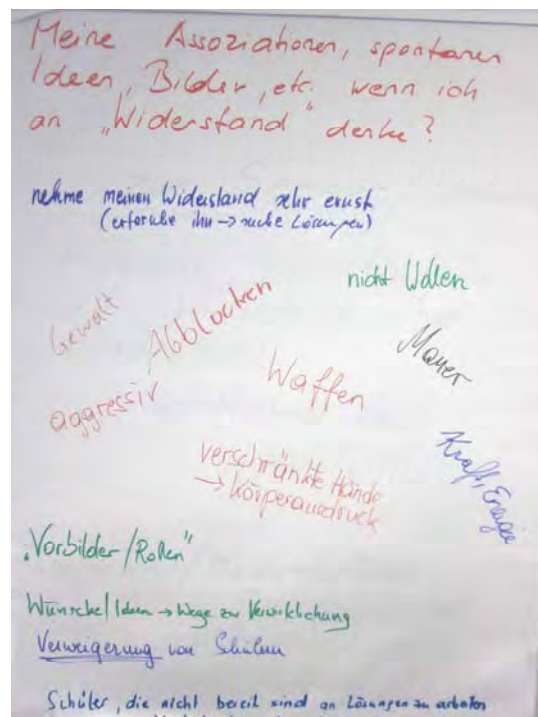 Meine Assoziationen, spontanen
Ideen, Bilder, etc. wenn ich
an „Widerstand" denke?
nehme meinen Widerstand sehr ernst
(erforsche ihn → suche Lösungen)
nicht Wollen
Gewalt
Abblocken
Mauer
Waffen
aggressiv
verschränkte Hände
→ Körperausdruck
Kraft, Energie
„Vorbilder/Rollen"
Wünsche/Ideen → Wege zur Verwirklichung
Verweigerung von Schülern
Schüler, die nicht bereit sind an Lösungen zu arbeiten